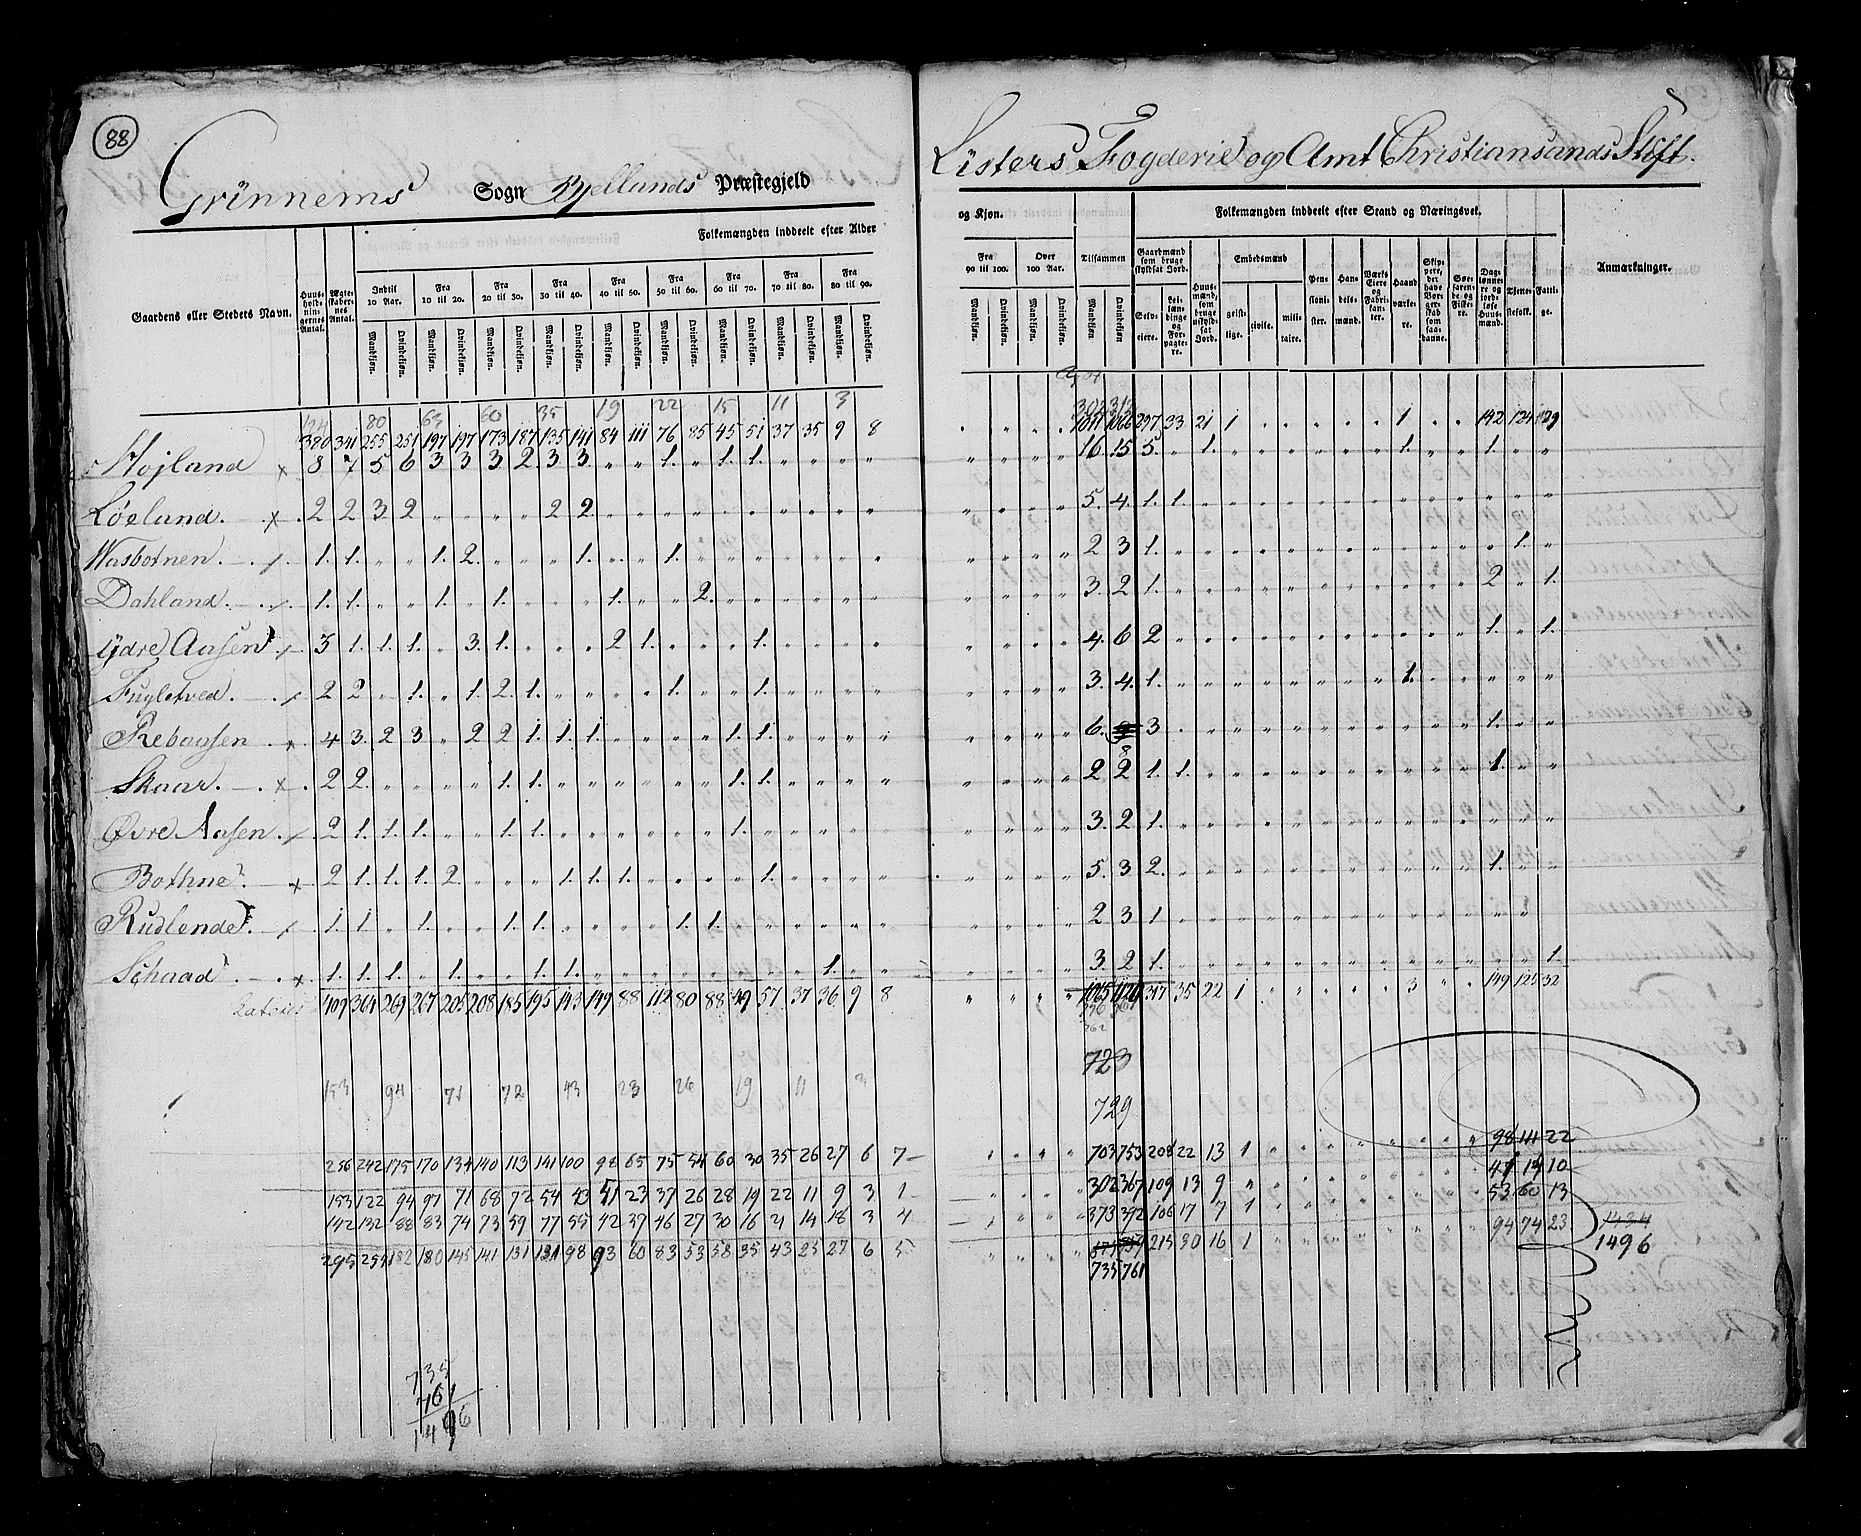 88
Grinnems Sogn Bjellands Præstegjeld
Listers Fogderie og Amt Christiansands Stift.
Gaardens eller Stedets Navn.
Huusholdningernes Antal.
Ægteskabernes Antal.
Folkemængden inddeelt efter Alder
og Kjøn.
Indtil 10 Aar.
Fra 10 til 20.
Fra 20 til 30.
Fra 30 til 40.
Fra 40 til 50.
Fra 50 til 60.
Fra 60 til 70.
Fra 70 til 80.
Fra 80 til 90.
Fra 90 til 100.
Over 100 Aar.
Tilsammen
Mandkjøn. Qvindekjøn.
Folkemængden inddeelt efter Stand og Næringsvei.
Gaardmænd som bruge skyldsat Jord.
Selveiere.
Leilændinge og Forpagtere.
Huusmænd, som bruge uskyldsat Jord.
Embedsmænd
geistlige. civile. militaire.
Pensionister.
Handelsmænd.
Værks Eiere og Fabrikanter.
Haandværkere.
Skippere, der have Borgerskab som saadanne.
Søefarende og Fiskere.
Daglønnere og jordløse Huusmænd.
Tjenestefolk.
Fattige.
Anmærkninger.
80 63 60 35 19 22 15 11 3
380 341 255 251 197 197 173 187 135 141 84 111 76 85 45 51 37 35 9 8 1011 1066 297 33 21 1 1 142 124 29
Højland x 8 7 5 6 3 3 3 2 3 3 „ „ 1. „ 1. 1. „ „ „ „ 16 15 5 „ 1. 1. 1.
Löeland. x 2 2 3 2 2 2 5. 4. 1. 1.
Wasbotnen. 1. 1. 1. 2. 1. 1. 2 3 1. 1.
Dahland. 1. 1. 1. 1. 1. 2. 3. 2 1. 2 1.
Ydre Aasen 3 1. 1. 1. 3. 1. 2 1. 1. 4. 6 2 1. 1.
Fugletved. 2 2 1. 1. 2. 1. 1. 1. 3. 4. 1. 1.
Rebaasen 4 3. 2 3 2 2 1. 1. 1. 1. 1. 6. 8 3 1.
Skaar. x 2 2. 1. 1. 1. 1. 2 2 1. 1. 1.
Øvre Aasen. 2 1. 1. 1. 1. 1. 1. 3. 2 1.
Bothne. x 2 1. 1. 1. 2 1. 1. 1. 1. 5. 3 2. 1.
Rudlende. 1. 1. 1. 1. 1. 1. 1. 2 3 1
Schaad x 1. 1. 1. 1. 1. 1. 1. 3. 2 1. 1.
Lateris 409 364 269 267 205 208 185 195 143 149 88 112 80 88 49 57 37 36 9 8 1065 1120 317 35 22 1 3 149 125 32
723
153 94 71 72 43 23 26 19 11 3
729
256 242 175 170 134 140 113 141 100 98 65 75 54 60 30 35 26 27 6 7 703 753 208 22 13 1 98 111 22
153 122 94 97 71 68 72 54 43 51 23 37 26 28 19 22 11 9 3 1 302 367 109 13 9 41 14 10
142 132 88 83 74 73 59 77 55 42 37 46 27 30 16 21 14 18 3 4 373 392 106 17 7 1 53 60 13
295 254 182 180 145 141 131 131 98 93 60 83 53 58 35 43 25 27 6 5 215 30 16 1 94 74 23 1434
735 761 1496
735
761
1496